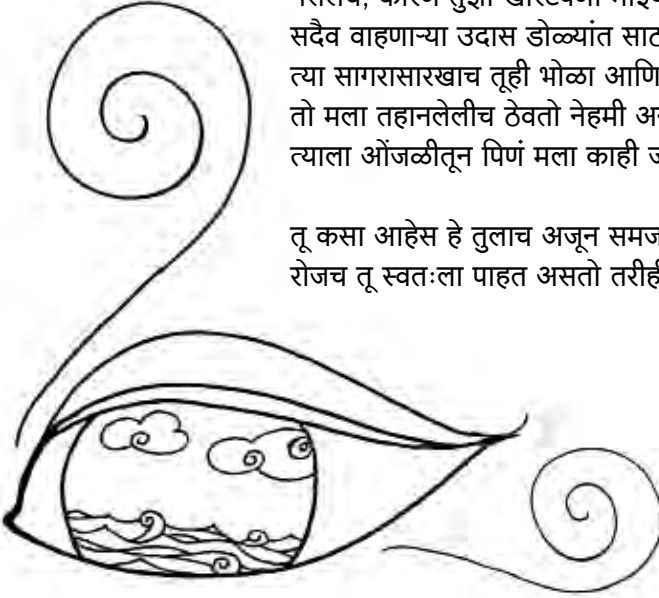 कारण तुझा खारटपणा
सदैव वाहणाऱ्या उदास डोळ्यांत
त्या सागरासारखाच तूही भोळा आणि
तो मला तहानलेलीच ठेवतो नेहमी
त्याला ओंजळीतून पिणं मला काही
तू कसा आहेस हे तुलाच अजून
रोजच तू स्वतःला पाहत असतो तरीही